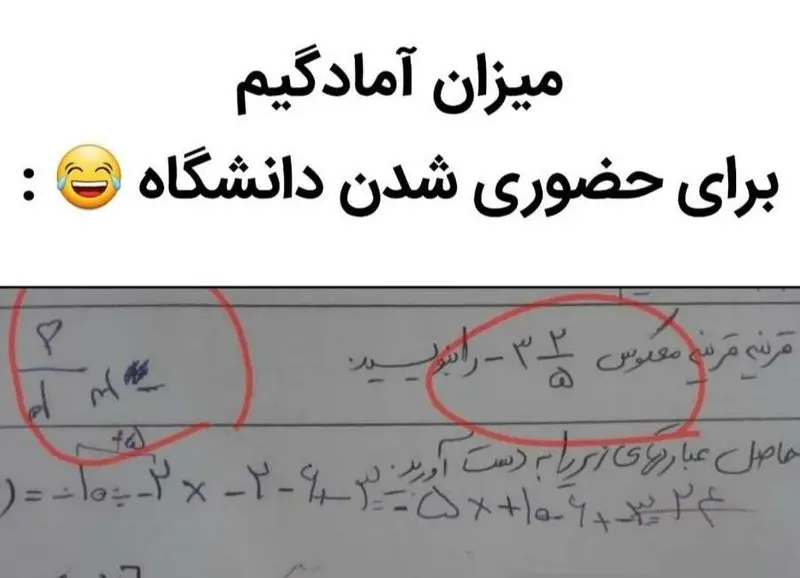 میزان آمادگیم
برای حضوری شدن دانشگاه 😂 :
قرینه قرینه معکوس ۳ ۲/۵ - را بنویسید:
حاصل عبارتهای زیر را به دست آورید:
= -۱۰ ÷ -۲ × -۲ - ۶ + -۳ = ۵ × +۱۰ - ۶ + -۳ =